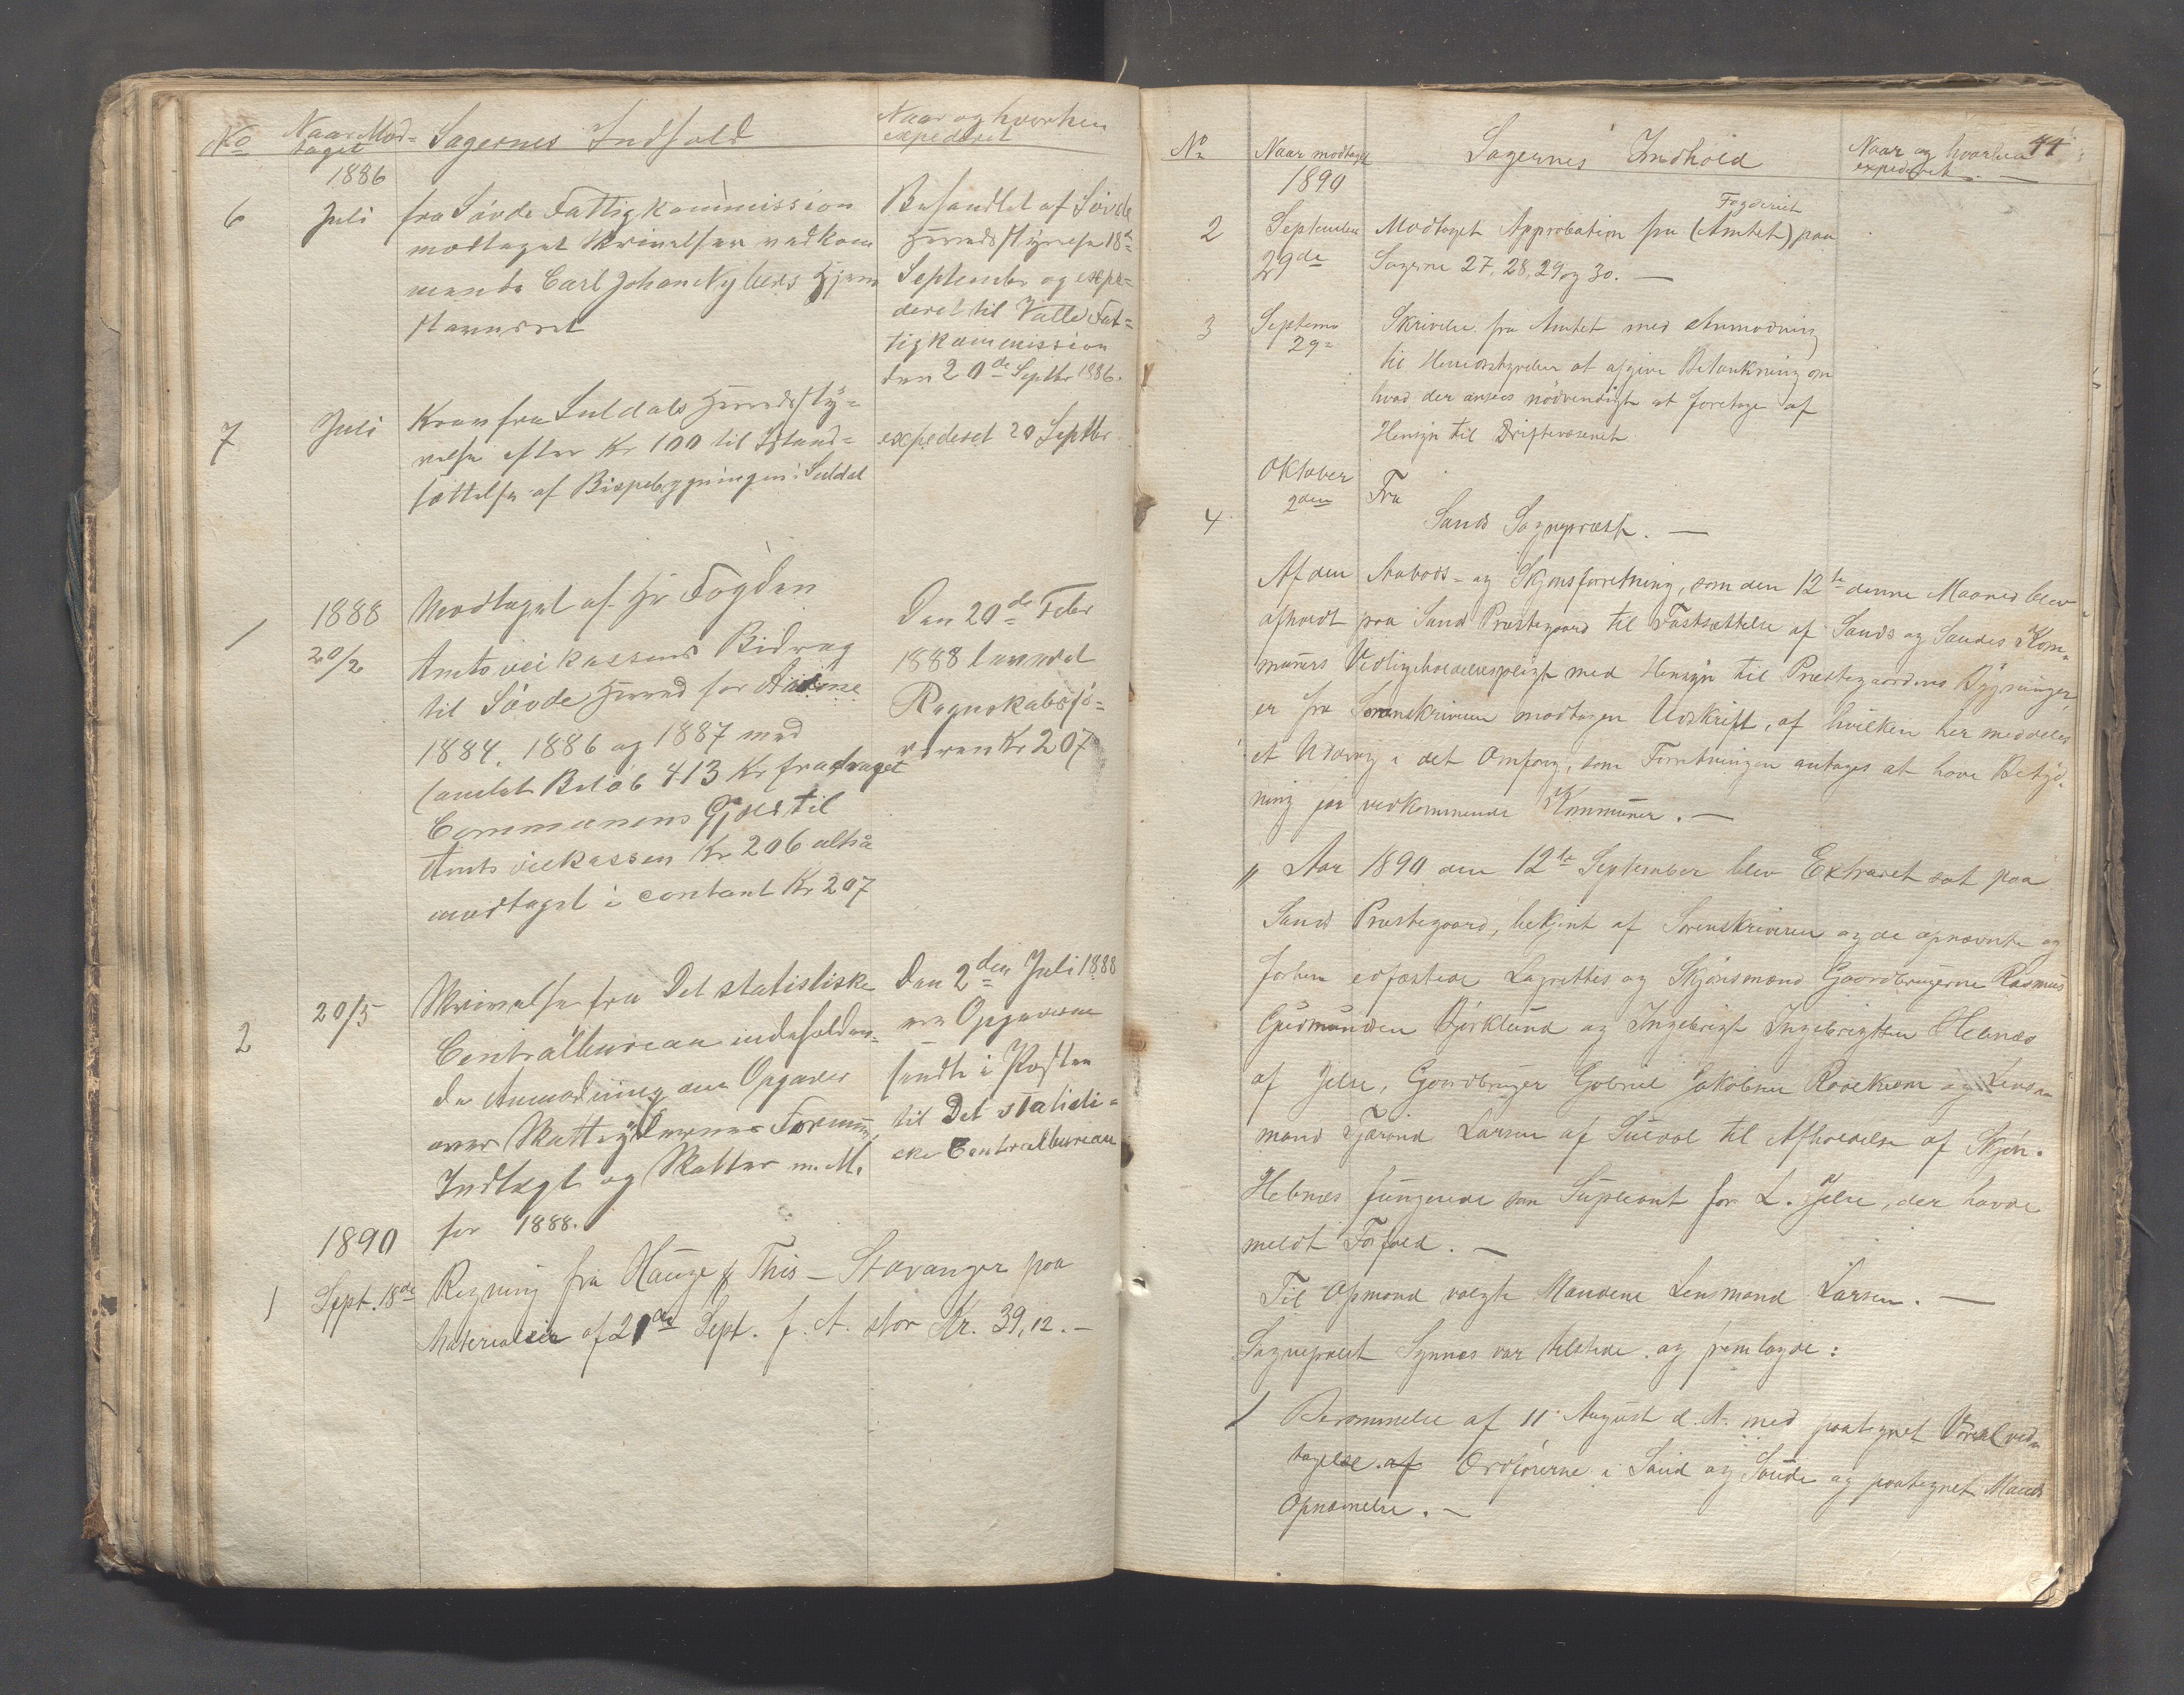 No Naar Mod- Sagernes Indhold Naar og hvorhen
taget expederet
1886
6 Juli fra Søvde Fattigkommission Behandlet af Søvde
modtaget Skrivelser vedkom Herredsstyrelse 18de
mende Carl Johan Nybergs Hjem September og expe=
stavnsret deret til Valle Fat=
tigkommission
den 20de Septbr 1886.
7 Juli Krav fra Suldals Herredssty= expederet 20 Septbr
relse efter Kr 100 til Istand=
sættelse af Bispebygningen i Suldal
1 1888 Modtaget af Hr Fogden Den 20de Febr
20/2 Amtsveikassens Bidrag 1888 leveret
til Søvde Herred for Aarene Regnskabsfø=
1884, 1886 og 1887 med reren Kr 207
samlet Beløb 413 Kr fradraget
Communens Gjæld til
Amtsveikassen Kr 206 altsaa
modtaget i contant Kr 207
2 20/5 Skrivelse fra Det statistiske Den 2den Juli 1888
Centralbureau indeholden= ere Opgaverne
de Anmodning om Opgaver sendte i Posten
over Skatteydernes Formue, til Det statisti=
Indtægt og Skatter m. M. ske Centralbureau
for 1888.
1890
1 Sept. 18de Regning fra Hauge & This – Stavanger paa
Materialier af 21de Sept. f. A. stor Kr. 39,12. –
44
No Naar modtaget Sagernes Indhold Naar og hvorhen
expederet. –
1890
Fogderiet
2 September Modtaget Approbation fra (Amtet) paa
29de Sagerne 27, 28, 29 og 30. –
3 Septemb Skrivelse fra Amtet med Anmodning
29= til Herredsstyrelsen at afgive Betænkning om
hvad der ansees nødvendigt at foretage af
Hensyn til Driftevæsenet
Oktober Fra
2den
4 Sands Sogneprest. –
Af den Aabods- og Skjønsforretning, som den 12te denne Maaned blev
afholdt paa Sand Præstegaard til Fastsættelse af Sands og Saudes Kom-
muners Vedligeholdelsespligt med Hensyn til Præstegaardens Bygninger,
er fra Sorenskriveren modtagen Udskrift, af hvilken her meddeles
et Uddrag i det Omfang, som Forretningen antages at have Betyd-
ning for vedkommende Kommuner. –
" Aar 1890 den 12te September blev Extraret sat paa
Sand Præstegaard, betjent af Sorenskriveren og de opnævnte og
forhen edfæstede Lagrettes og Skjønsmænd Gaardbrugerne Rasmus
Gudmundsen Bjørklund og Ingebrigt Ingebrigtsen Hebnæs
af Jelse, Gaardbruger Gabriel Jakobsen og Lens-
mand Larsen af Suldal til Afholdelse af Skjøn.
Hebnæs fungerede som Supleant for L. Jelse, der havde
meldt Forfald. –
Til Opmand valgte Mændene Lensmand Larsen. –
Sogneprest Synnes var tilstede og fremlagde:
1 Berammelse af 11 August d. A. med paategnet Varselved-
tagelse af Ordførerne i Sand og Saude og paategnet Mænds
Opnævnelse. –